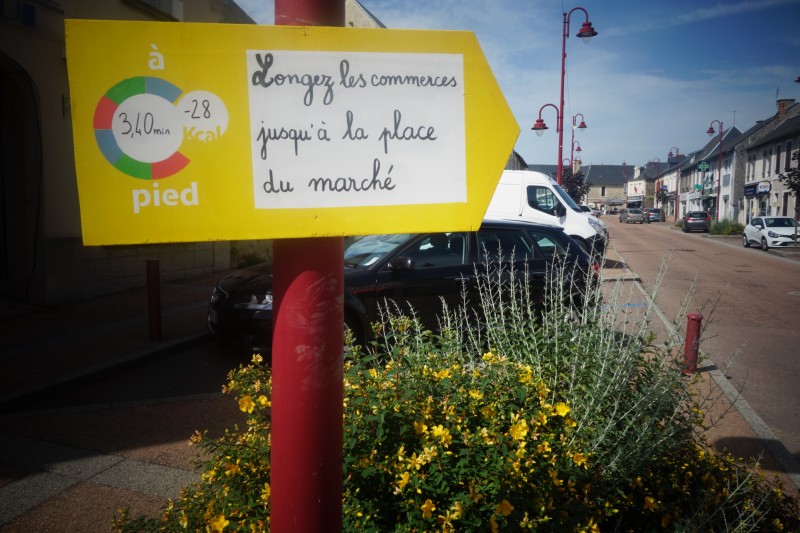 à
3,40min
-28
Kcal
pied
Longez les commerces
jusqu'à la place
du marché